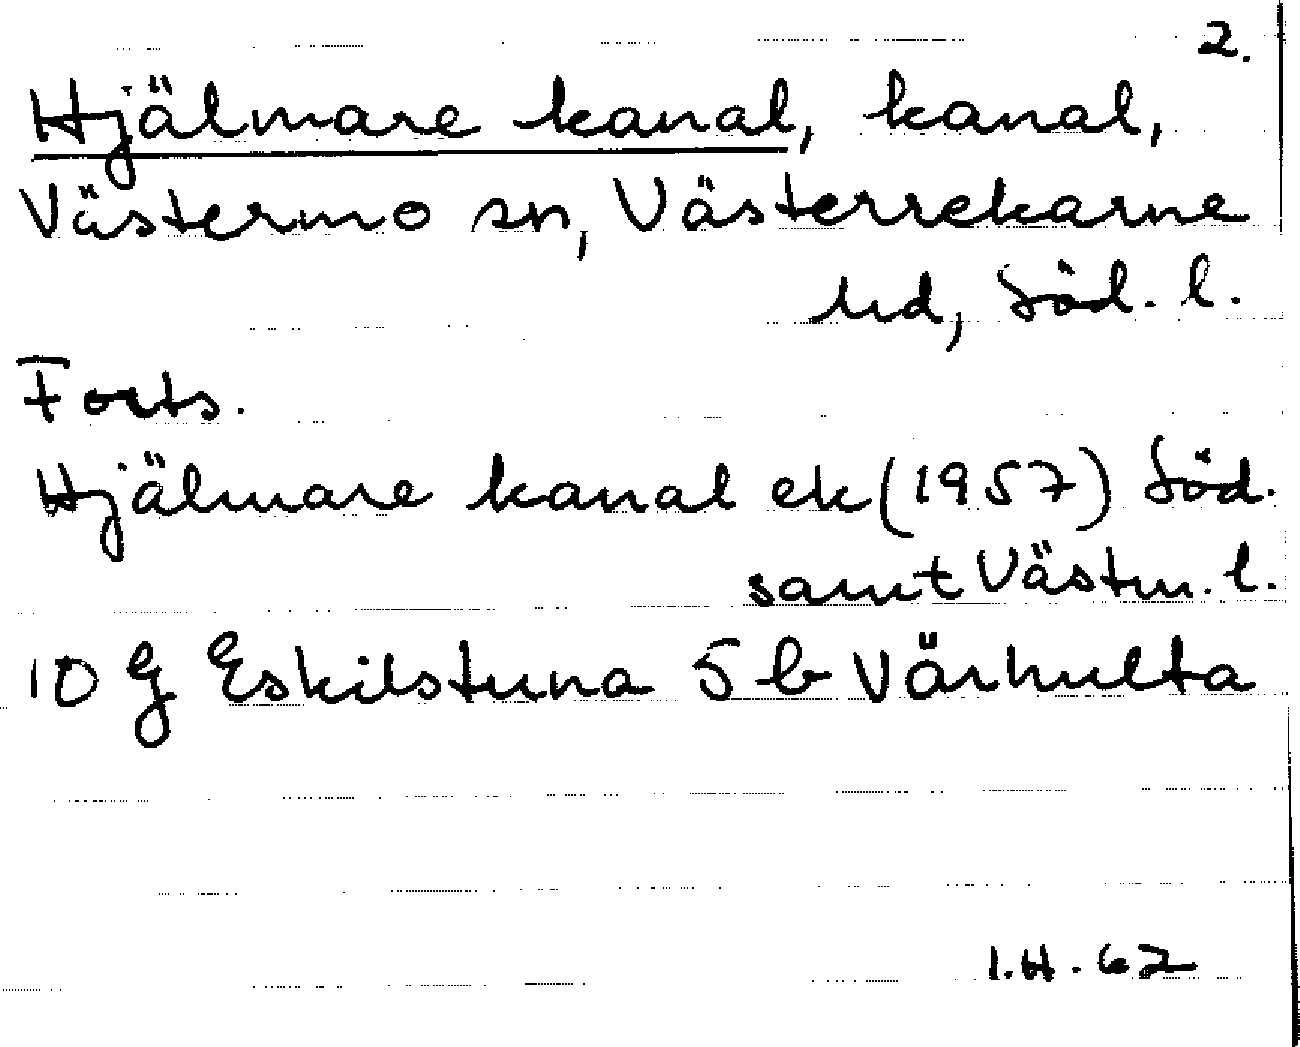 2.
Hjälmare kanal, kanal,
Västermo sn, Västerrekarne
hd, Söd. l.
Forts.
Hjälmare kanal ek (1957) Söd.
samt Västm. l.
10 G Eskilstuna 5 b Värhulta
I.H. 62